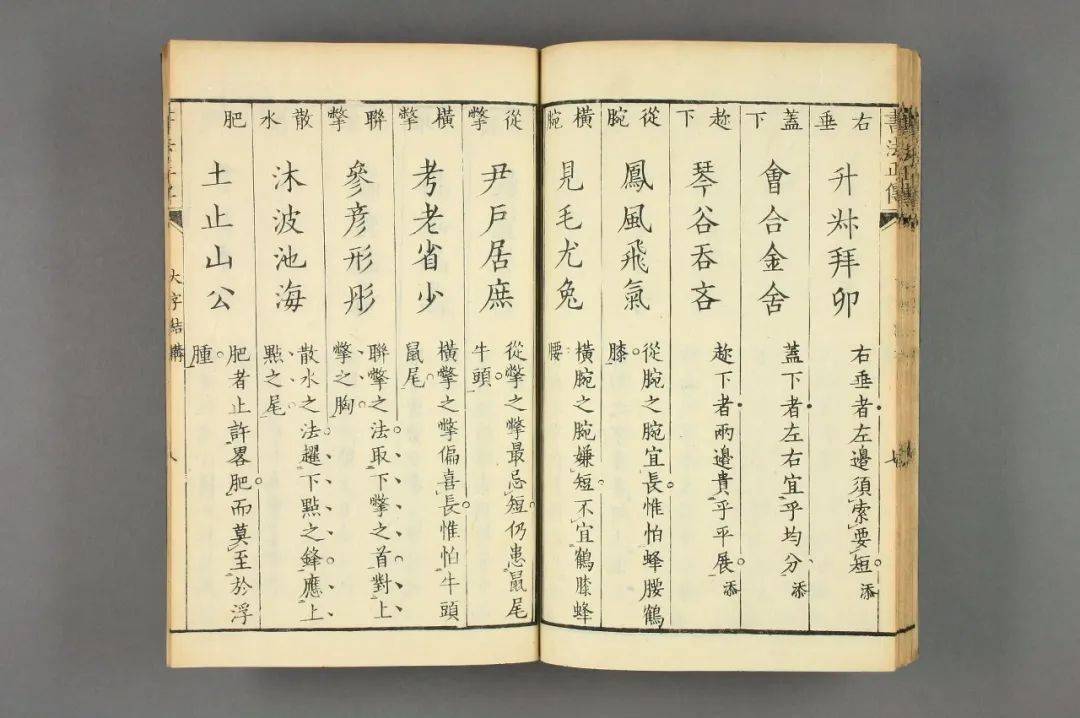 書法正傳
右垂
升拜卯
右垂者左邊須索要短添
蓋下
會合金舍
蓋下者左右宜乎均分添
趂下
琴谷吞吝
趂下者兩邊貴乎平展添
從腕
鳳風飛氣
從腕之腕宜長惟怕蜂腰鶴
膝
橫腕
見毛尤兔
橫腕之腕嫌短不宜鶴膝蜂
腰
從撆
尹戶居庶
從撆之撆最忌短仍患鼠尾
牛頭
橫撆
考老省少
橫撆之撆偏喜長惟怕牛頭
鼠尾
聯撆
參彥形彤
聯撆之法取下撆之首對上
撆之胸
散水
沐波池海
散水之法趯下點之鋒應上
點之尾
肥
土止山公
肥者止許畧肥而莫至於浮
腫
大字結構
八